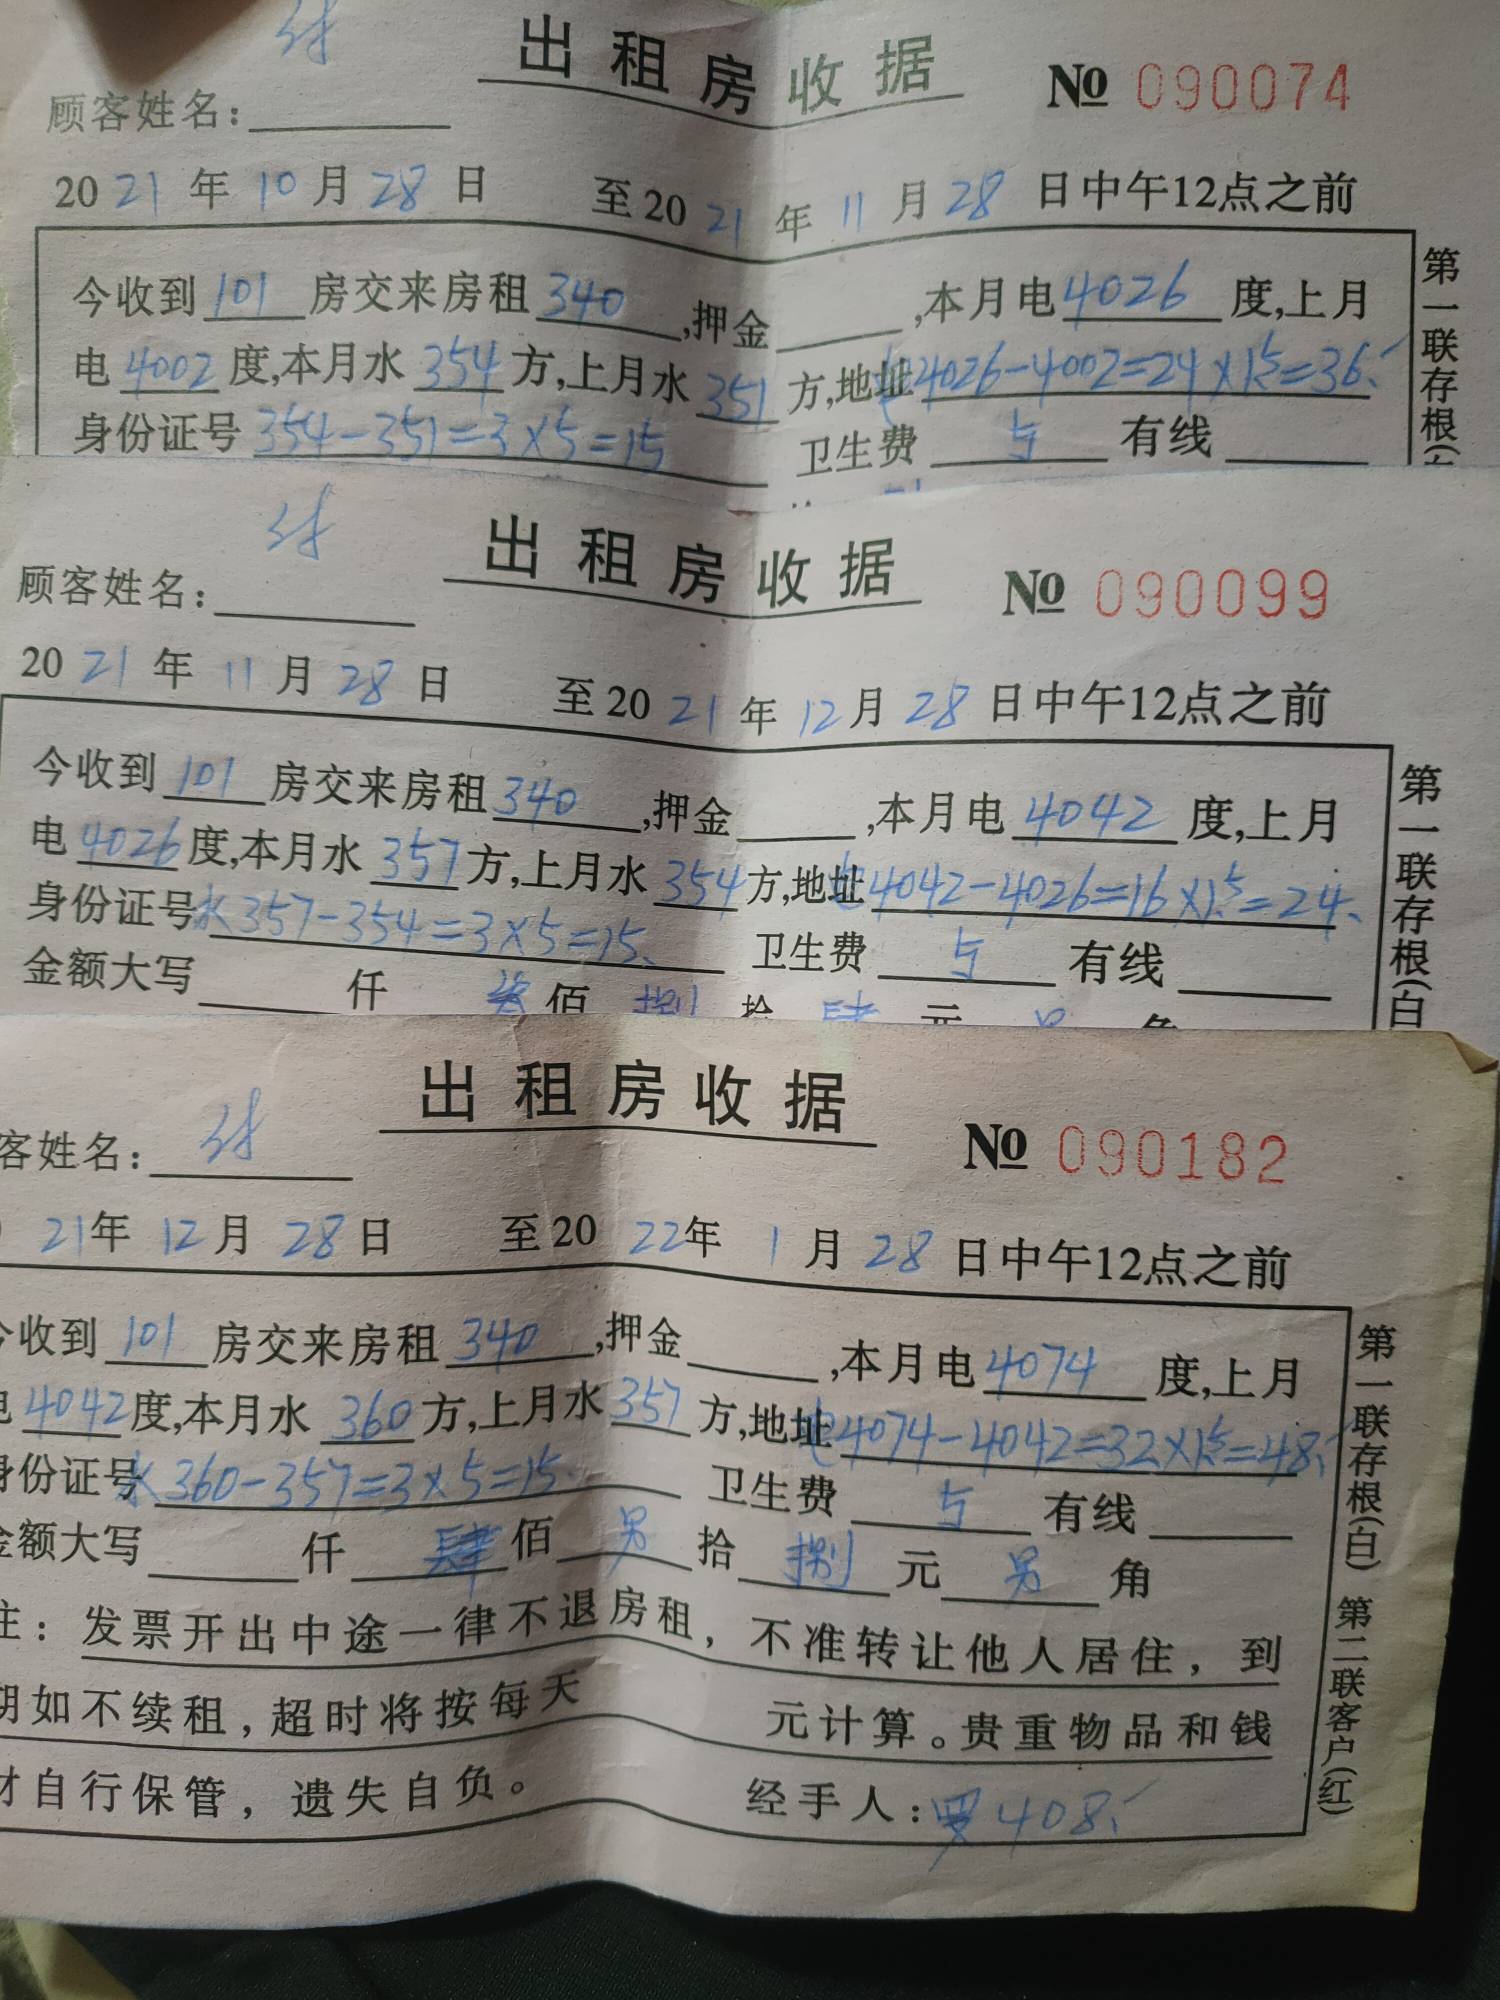 出租房收据 № 090074
顾客姓名:
2021年10月28日 至2021年11月28日中午12点之前
今收到101房交来房租340,押金 ,本月电4026度,上月
电4002度,本月水354方,上月水351方,地址电4026-4002=24×1.5=36.
身份证号354-351=3×5=15 卫生费5有线
第一联存根(
出租房收据 № 090099
顾客姓名:
2021年11月28日 至2021年12月28日中午12点之前
今收到101房交来房租340,押金 ,本月电4042度,上月
电4026度,本月水357方,上月水354方,地址电4042-4026=16×1.5=24.
身份证号水357-354=3×5=15. 卫生费5有线
金额大写 仟叁佰捌拾肆元另角
第一联存根(白
出租房收据 № 090182
客姓名:
21年12月28日 至2022年1月28日中午12点之前
收到101房交来房租340,押金 ,本月电4074度,上月
电4042度,本月水360方,上月水357方,地址电4074-4042=32×1.5=48.
身份证号水360-357=3×5=15. 卫生费5有线
金额大写 仟肆佰另拾捌元另角
注:发票开出中途一律不退房租,不准转让他人居住,到
期如不续租,超时将按每天 元计算。贵重物品和钱
财自行保管,遗失自负。 经手人:罗408.
第一联存根(白) 第二联客户(红)